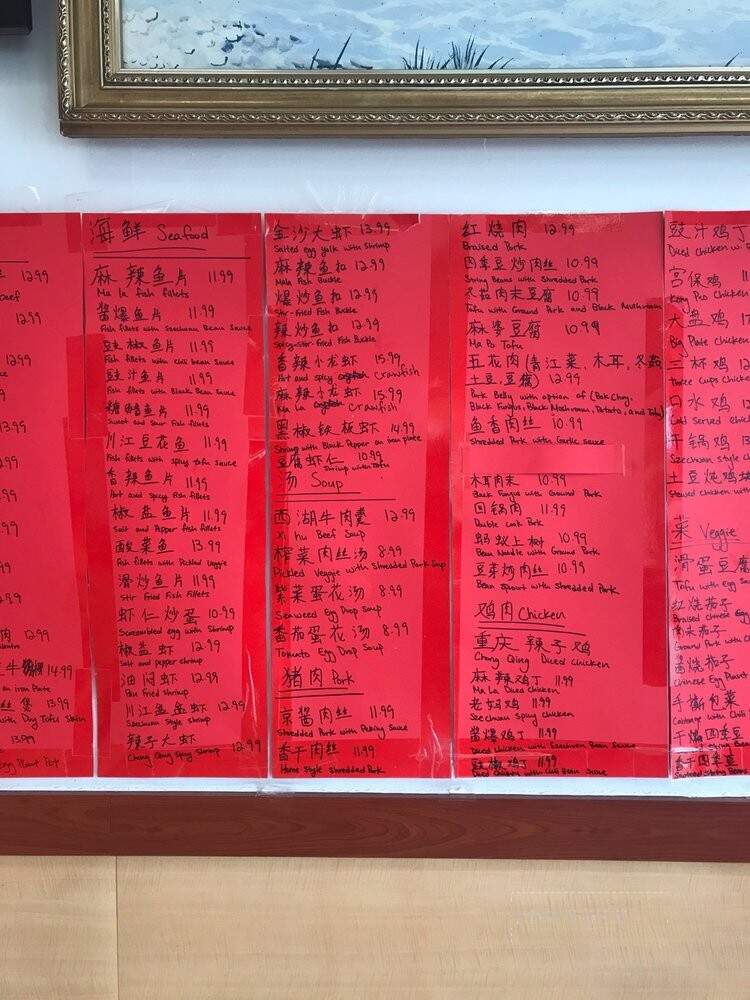 12.99
oef
12.99
12.99
13.99
肉 12.99
牛 14.99
an iron Plate
煲 13.99
with Dry Tofu Skin
13.99
Egg Plant Pot
海鲜 Seafood
麻辣鱼片 11.99
Ma la fish fillets
酱爆鱼片 11.99
Fish fillets with Szechuan Bean Sauce
豉椒鱼片 11.99
Fish fillets with chili bean Sauce
豉汁鱼片 11.99
Fish fillets with Black Bean Sauce
糖醋鱼片 11.99
Sweet and Sour Fish fillets
川江豆花鱼 11.99
Fish fillets with spicy tofu sauce
香辣鱼片 11.99
Hot and spicy Fish fillets
椒盐鱼片 11.99
Salt and Pepper fish fillets
酸菜鱼 13.99
Fish fillets with Pickled Veggie
滑炒鱼片 11.99
Stir Fried Fish fillets
虾仁炒蛋 10.99
Screambled egg with Shrimp
椒盐虾 12.99
Salt and pepper shrimp
油闷虾 12.99
Pan Fried shrimp
川江盆盆虾 12.99
Szechuan Style shrimp
辣子大虾 12.99
Chong Qing Spicy shrimp
金沙大虾 13.99
Salted egg yolk with Shrimp
麻辣鱼扣 12.99
Mala Fish Buckle
爆炒鱼扣 12.99
Stir-Fried Fish Buckle
辣炒鱼扣 12.99
Spicy-Stir-Fried Fish Buckle
香辣小龙虾 15.99
Hot and spicy Crawfish
麻辣小龙虾 15.99
Ma La Crawfish
黑椒铁板虾 14.99
Shrimp with Black Pepper on iron plate
豆腐虾仁 10.99
Shrimp with Tofu
汤 Soup
西湖牛肉羹 12.99
Xi Hu Beef Soup
榨菜肉丝汤 8.99
Pickled Veggie with Shredded Pork Soup
紫菜蛋花汤 8.99
Seaweed Egg Drop Soup
番茄蛋花汤 8.99
Tomato Egg Drop Soup
猪肉 Pork
京酱肉丝 11.99
Shredded Pork with Peking Sauce
香干肉丝 11.99
Home Style Shredded Pork
红烧肉 12.99
Braised Pork
四季豆炒肉丝 10.99
String Beans with Shredded Pork
冬菇肉末豆腐 10.99
Tofu with Ground Pork and Black Mushroom
麻婆豆腐 10.99
Ma Po Tofu
五花肉(青江菜,木耳,冬菇
土豆,豆腐) 12.99
Pork Belly with option of (Bok Choy,
Black Fungus, Black Mushroom, Potato, and Tofu)
鱼香肉丝 10.99
Shredded Pork with Garlic sauce
木耳肉末 10.99
Back Fungus with Ground Pork
回锅肉 11.99
Double Cook Pork
蚂蚁上树 10.99
Bean Noodle with Ground Pork
豆芽炒肉丝 10.99
Bean Sprout with Shredded Pork
鸡肉 Chicken
重庆辣子鸡
Chong Qing Diced Chicken
麻辣鸡丁 11.99
Ma La Diced Chicken
老妈鸡 11.99
Szechuan Spicy Chicken
酱爆鸡丁 11.99
Diced Chicken with Szechuan Bean Sauce
豉椒鸡丁 11.99
Diced Chicken with Chili Bean Sauce
豉汁鸡丁
Diced Chicken w
宫保鸡 11
Kong Pao Chicken
大盘鸡 17
Big Plate Chicken
三杯鸡 12
Three Cups Chicken
口水鸡 12
Cold Served Chicken
干锅鸡 13
Szechuan Style ch
土豆炖鸡块
Stewed chicken with
菜 Veggie
滑蛋豆腐
Tofu with Egg Sa
红烧茄子
Braised chinese Eg
肉末茄子
Ground Pork with C
酱烧茄子
Chinese Egg Plant
手撕包菜
Cabbage with Chili
干煸四季豆
String Beans
香干四季豆
String Beans